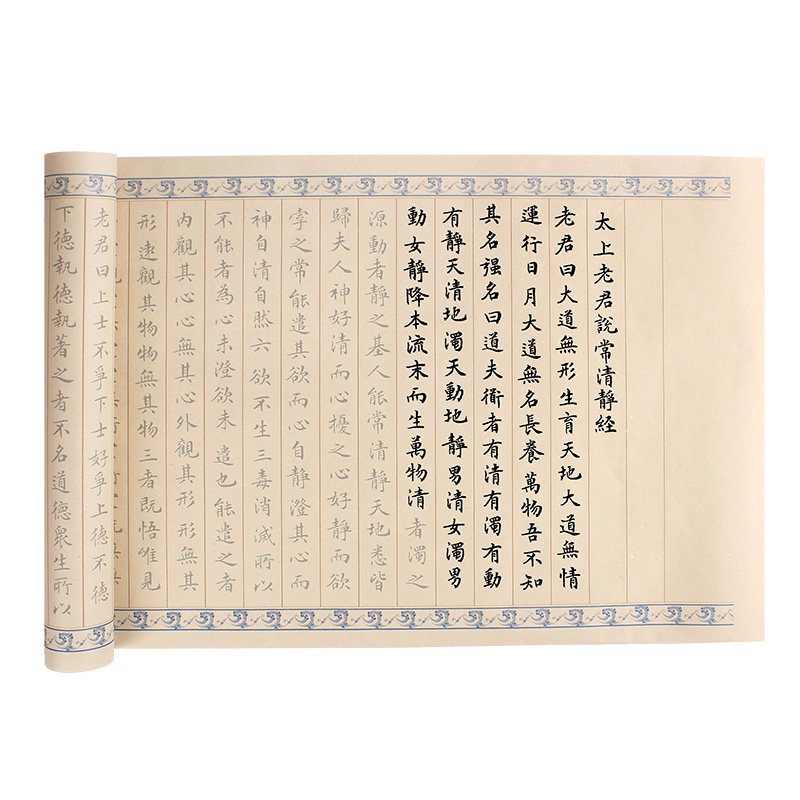 太上老君說常清靜経
老君曰大道無形生育天地大道無情
運行日月大道無名長養萬物吾不知
其名强名曰道夫衜者有清有濁有動
有靜天清地濁天動地靜男清女濁男
動女靜降本流末而生萬物清者濁之
源動者靜之基人能常清靜天地悉皆
歸夫人神好清而心擾之心好靜而欲
牽之常能遣其欲而心自靜澄其心而
神自清自然六欲不生三毒消滅所以
不能者為心未澄欲未遣也能遣之者
內觀其心心無其心外觀其形形無其
形遠觀其物物無其物三者既悟唯見
老君曰上士不爭下士好爭上德不德
下德執德執著之者不名道德衆生所以